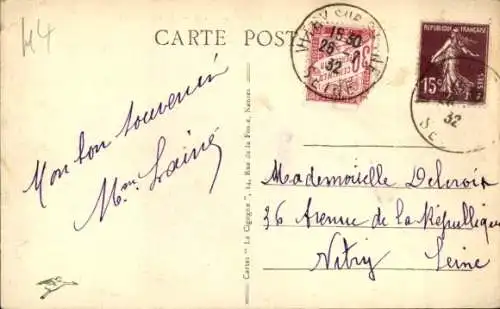 M4
CARTE POST
VITRY SUR SEINE
15 30
26
32
SEINE
30
CENTIMES
REPUBLIQUE FRANCAISE
15c
POSTES
32
Mon bon souvenir
Mme Lainé
Cartes "La Cigogne", 14, Rue de la Fosse, Nantes
Mademoiselle Delcroix
36 Avenue de la République
Vitry Seine